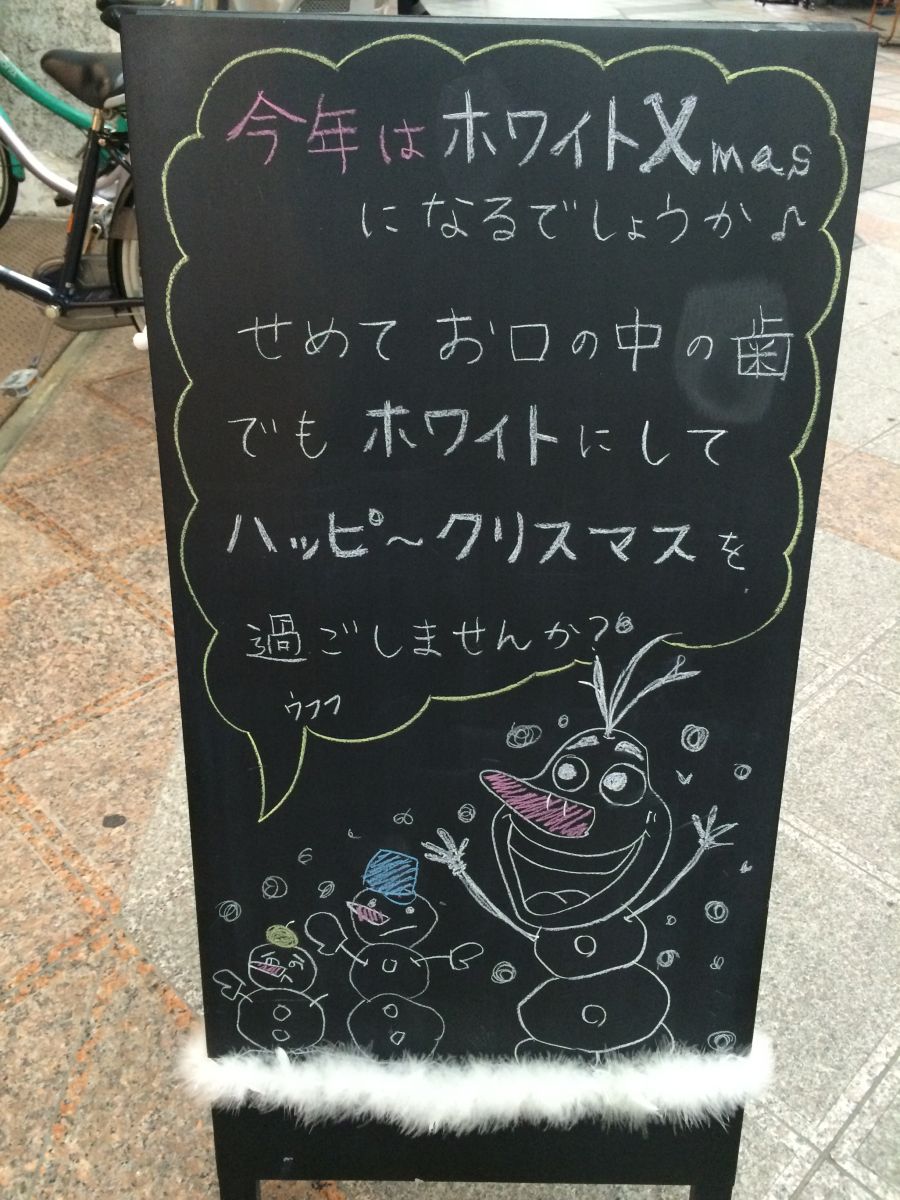 今年はホワイトXmas
になるでしょうか♪
せめてお口の中の歯
でもホワイトにして
ハッピ～クリスマスを
過ごしませんか?
ウフフ